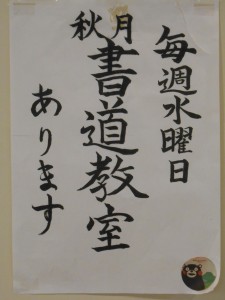 毎週水曜日
秋月書道教室
あります